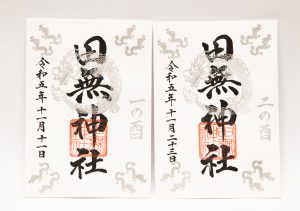 田無神社
一の酉
令和五年十一月十一日
田無神社
二の酉
令和五年十一月二十三日